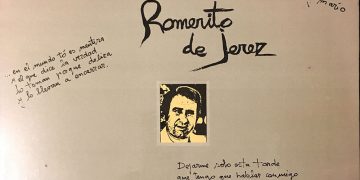 Romerito
de Jerez
Mario
...en el mundo tó es mentira
y el que dice la verdad
lo toman porque delira
y lo llevan a encerrar.
Dejarme solo esta tarde
que tengo que hablar conmigo